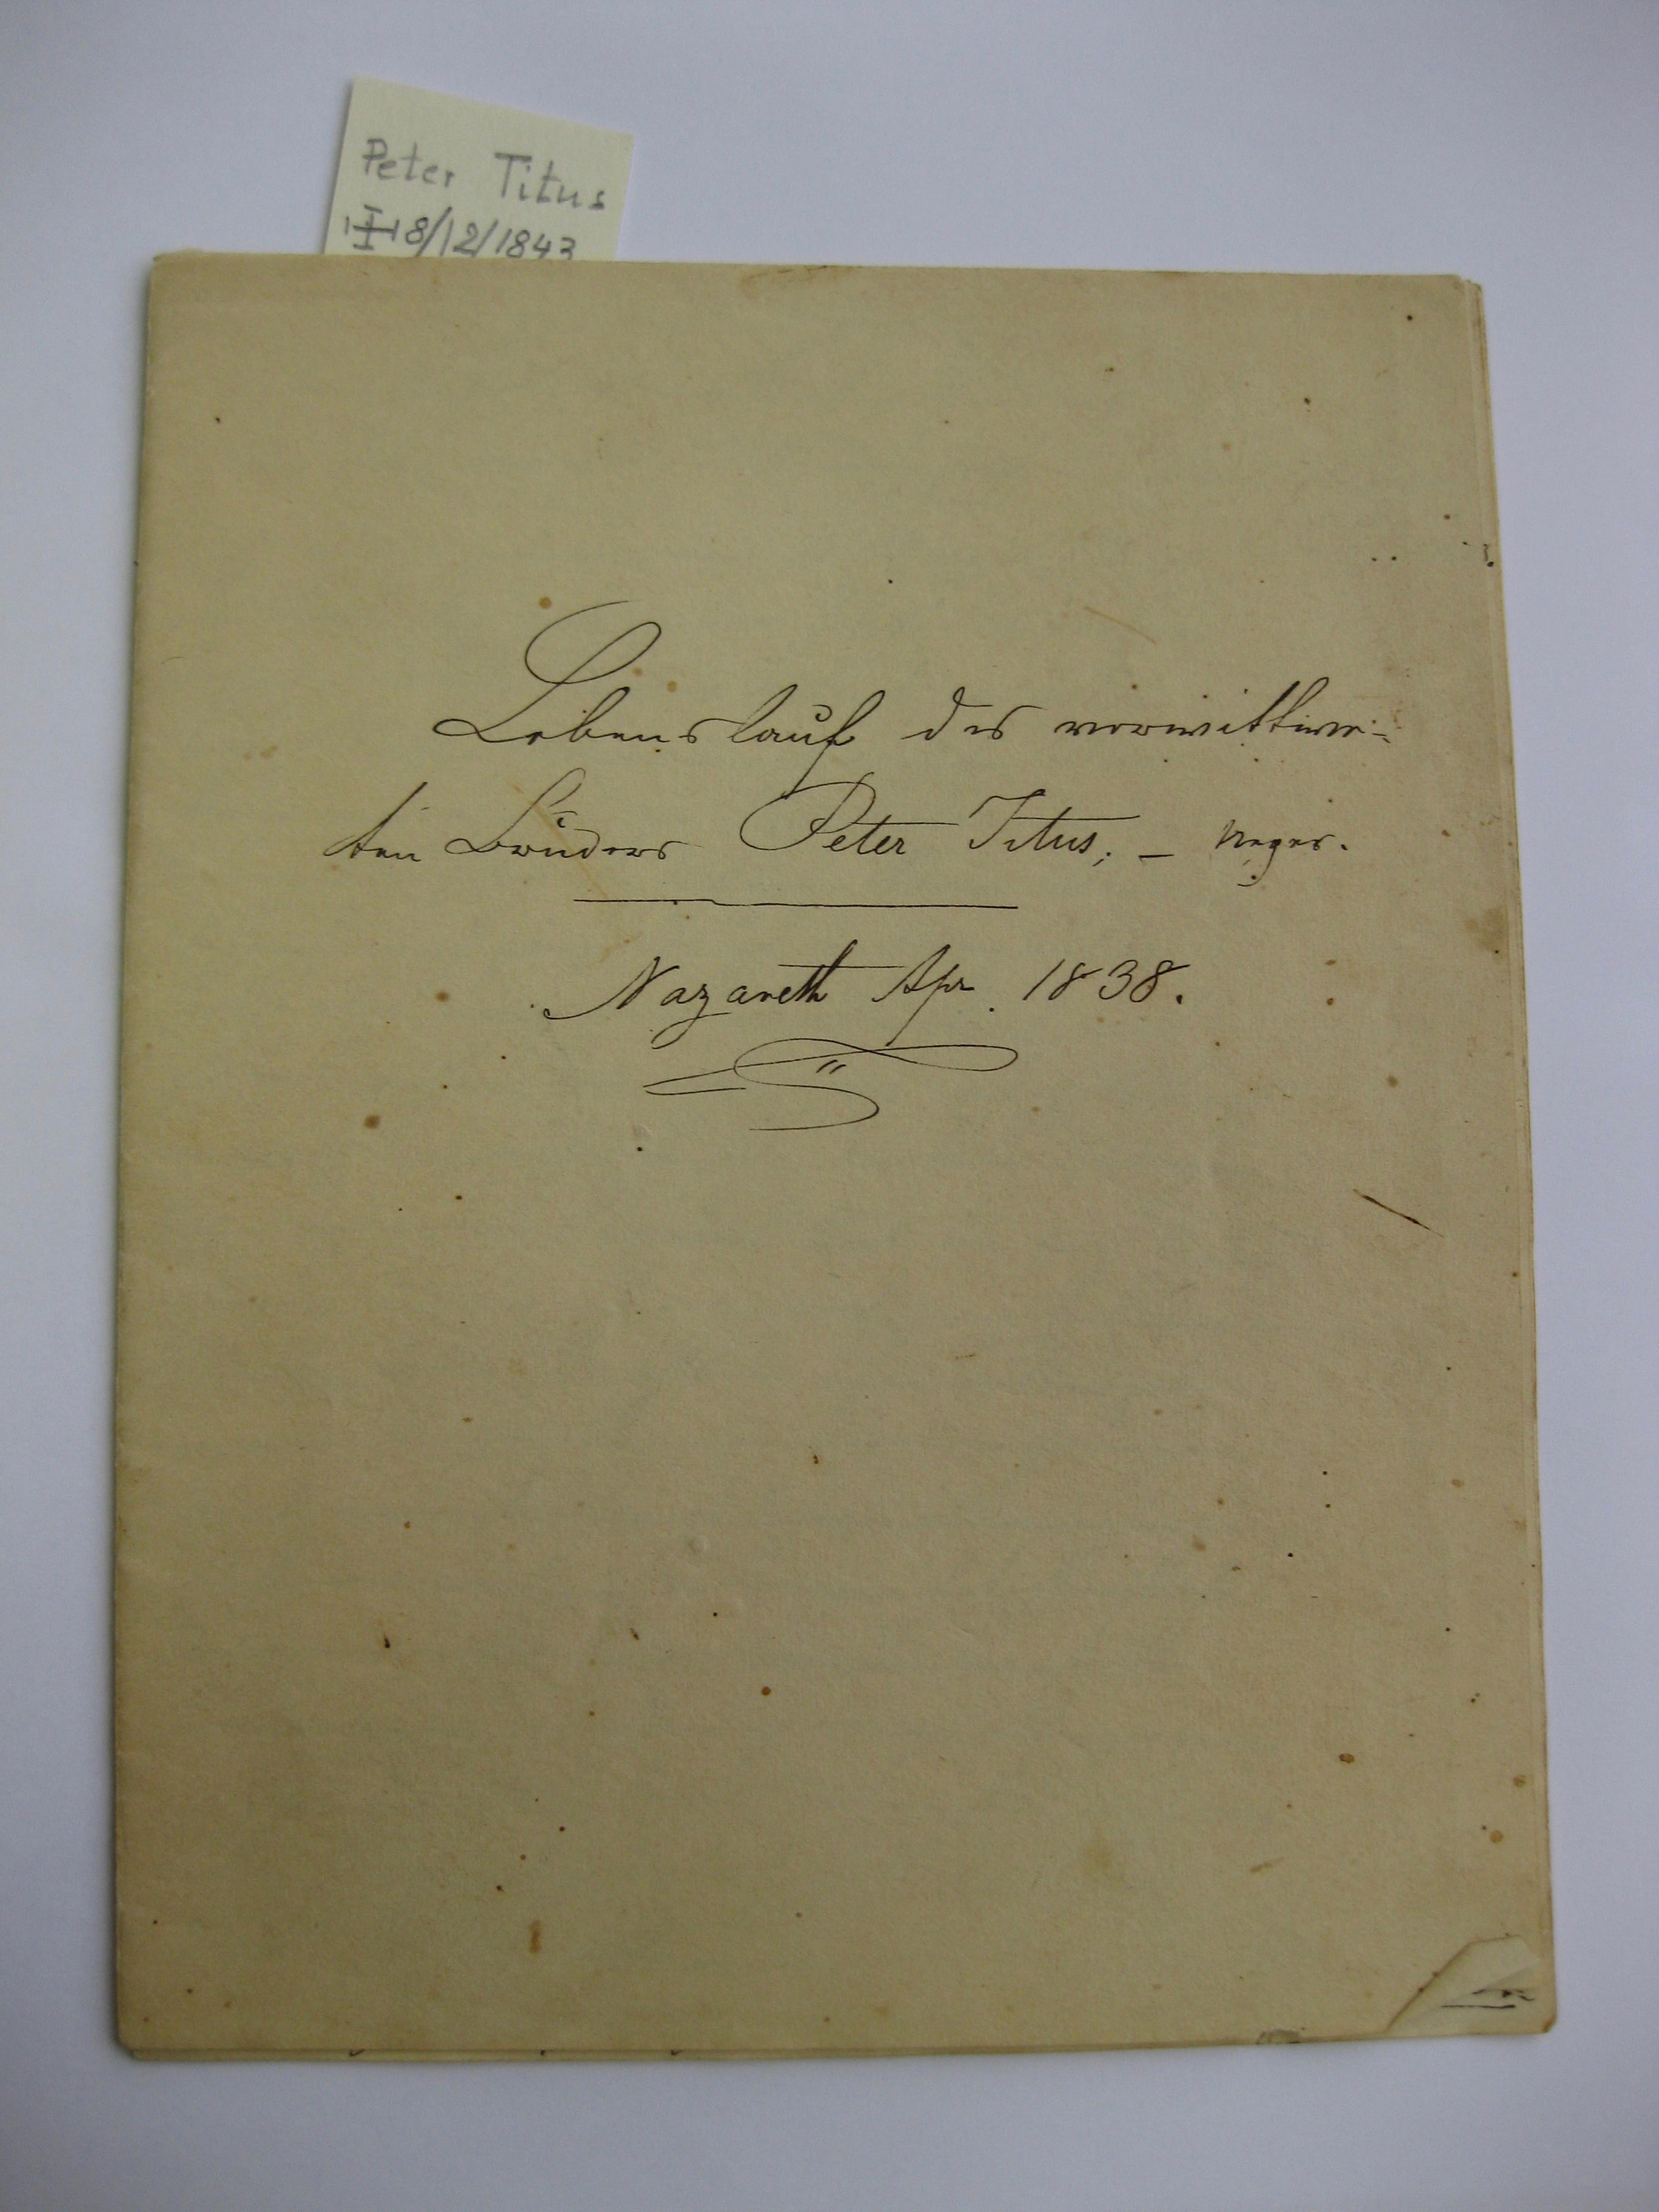 Peter Titus
8/12/1843
Lebenslauf des verwittwe-
ten Bruders Peter Titus, – Neger.
Nazareth Apr. 1838.